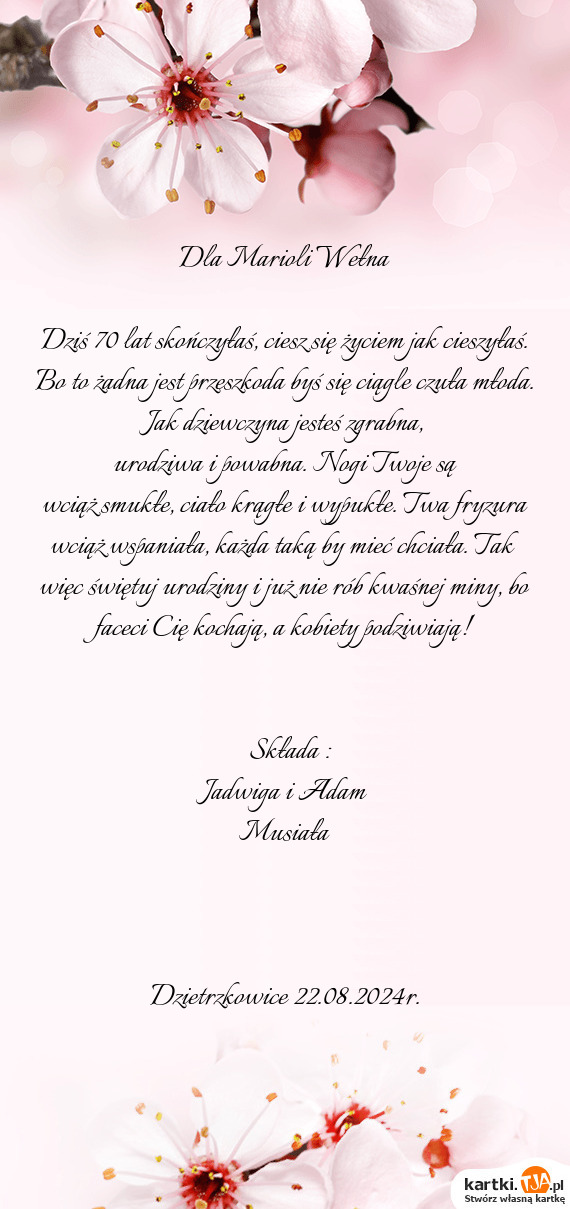 Dla Marioli Wełna
Dziś 70 lat skończyłaś, ciesz się życiem jak cieszyłaś.
Bo to żadna jest przeszkoda byś się ciągle czuła młoda.
Jak dziewczyna jesteś zgrabna,
urodziwa i powabna. Nogi Twoje są
wciąż smukłe, ciało krągłe i wypukłe. Twa fryzura
wciąż wspaniała, każda taką by mieć chciała. Tak
więc świętuj urodziny i już nie rób kwaśnej miny, bo
faceci Cię kochają, a kobiety podziwiają!
Składa :
Jadwiga i Adam
Musiała
Dzietrzkowice 22.08.2024r.
kartki.TJA.pl
Stwórz własną kartkę